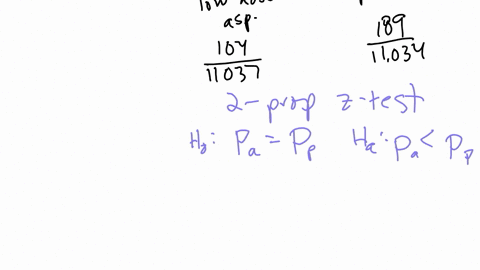 low
asp.
104
11037
189
11,034
2-prop z-test
H₀: Pₐ = Pₚ Hₐ: Pₐ < Pₚ